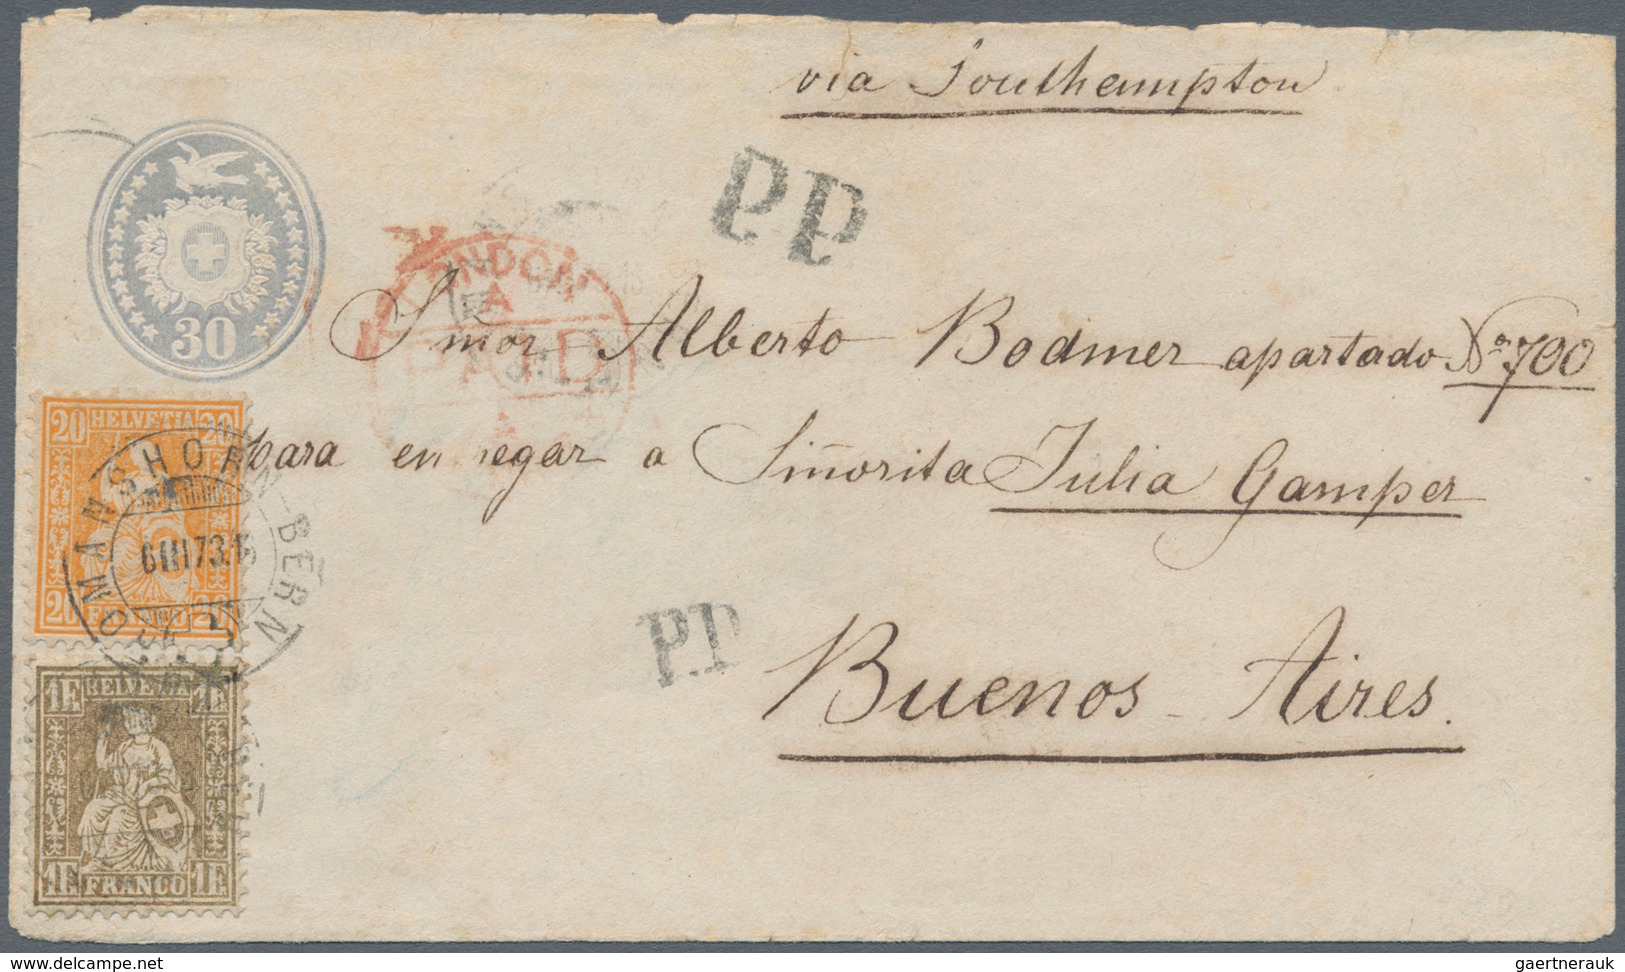 via Southampton
30
PP
LONDON
A
PAID
Sñor Alberto Bodmer apartado No 700
para en regar a Siñorita Julia Gamper
20 HELVETIA 20
ROMANSHORN-BERN
6 III 73
20 FRANCO 20
P.P
Buenos-Aires.
1F HELVETIA 1F
1F FRANCO 1F
www.delcampe.net
gaertnerauk